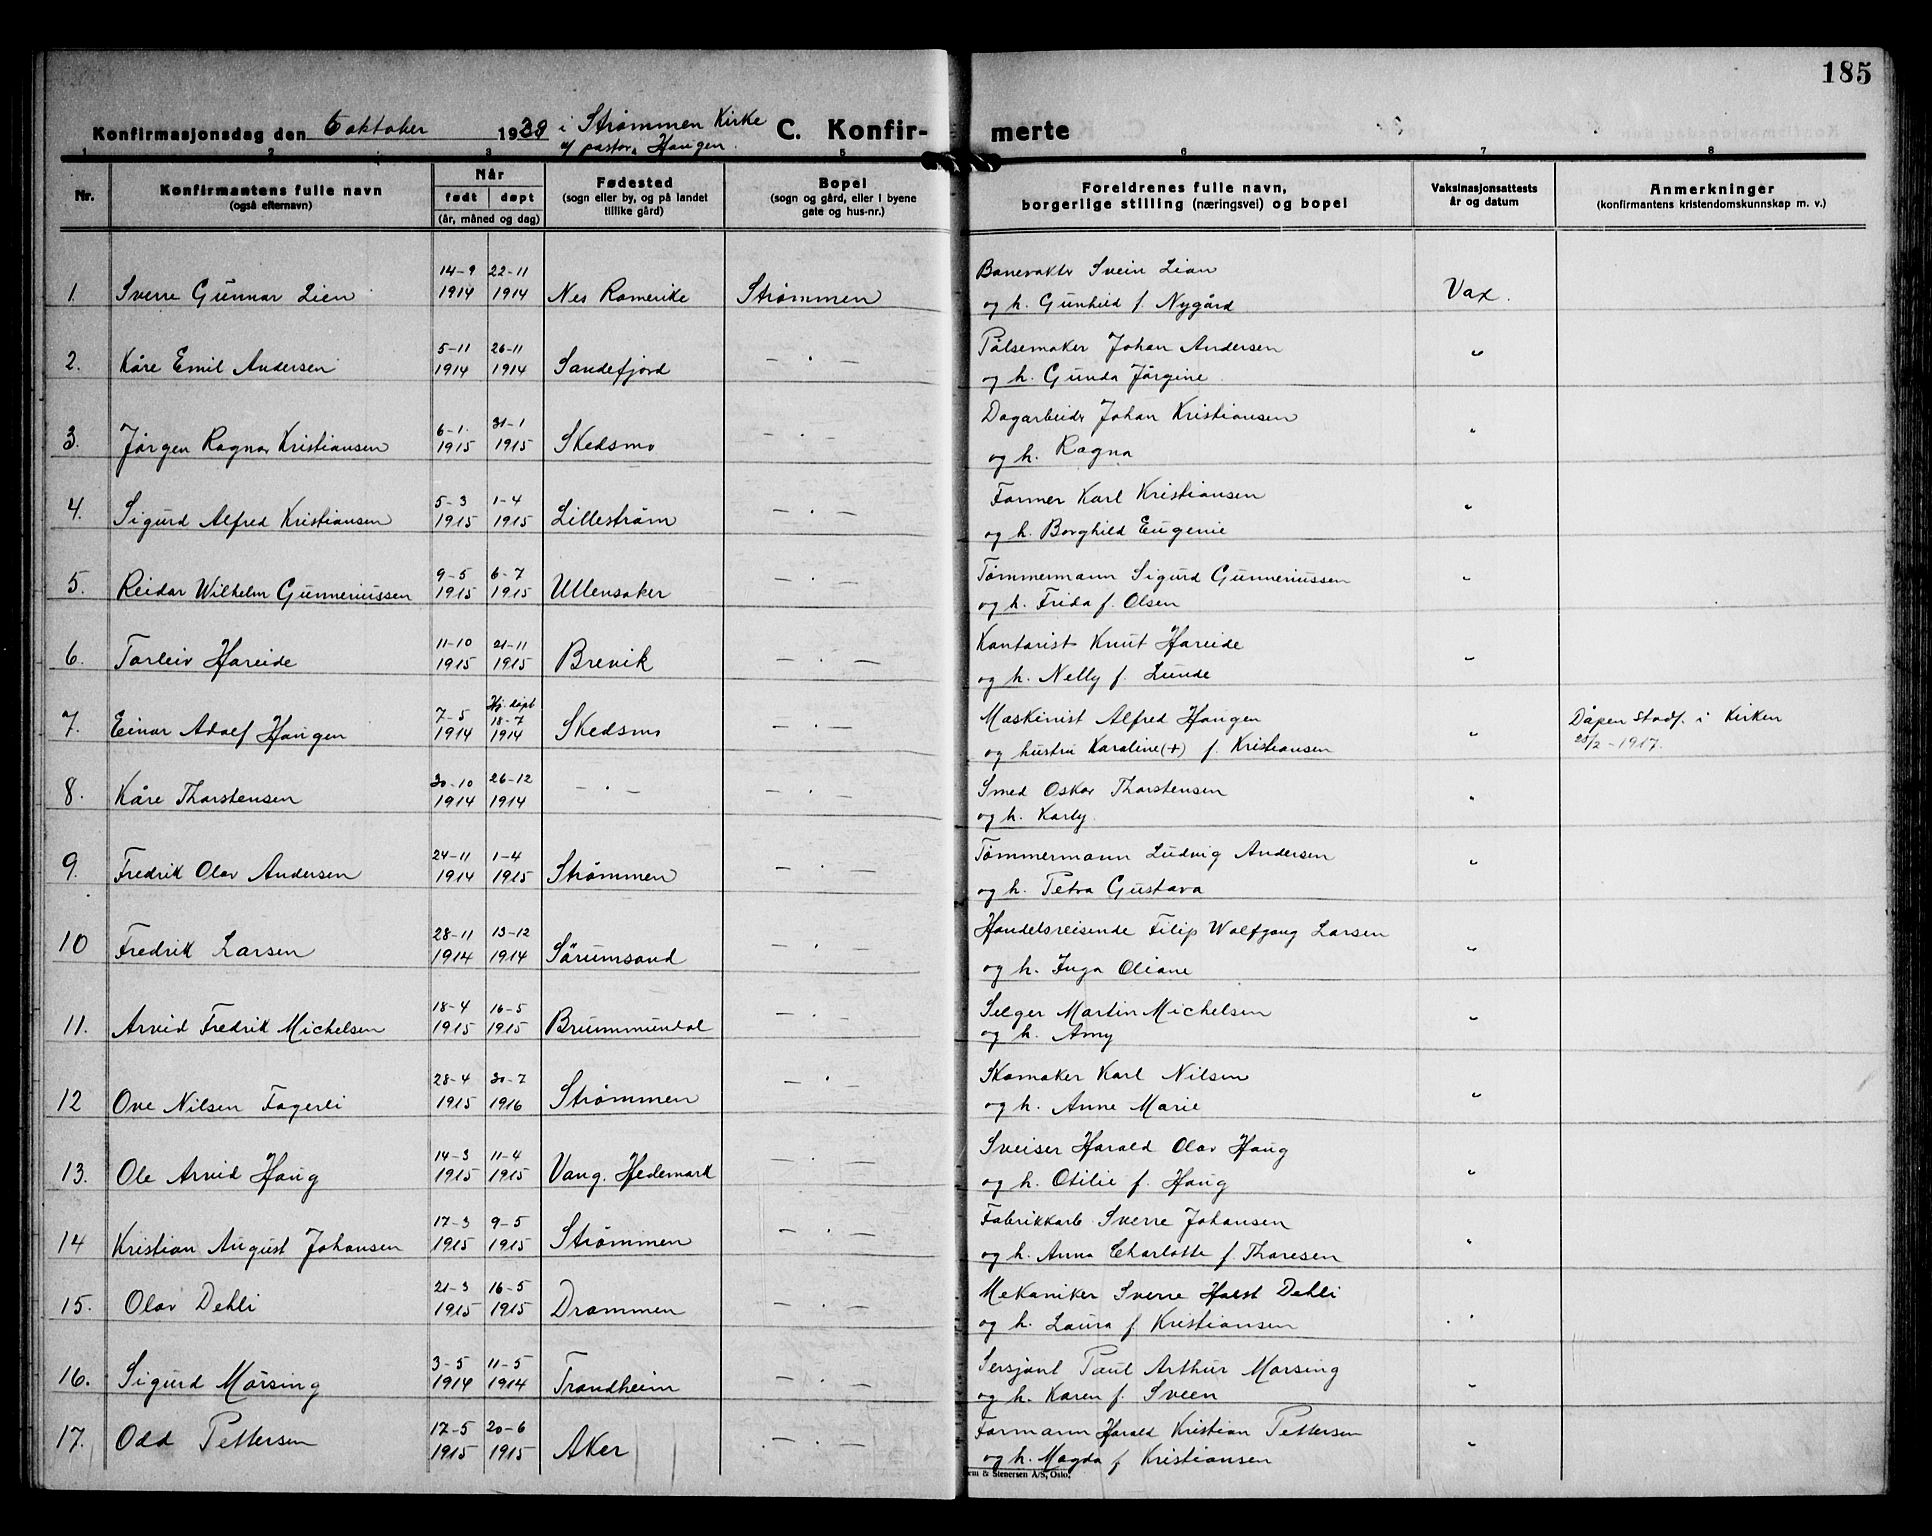 185
Konfirmasjonsdag den oktober i Strømmen Kirke
v/ pastor Haugen.
C. Konfirmerte
1 2 3 5 6 7 8
Nr.
Konfirmantens fulle navn
(også efternavn)
Når
født døpt
(år, måned og dag)
Fødested
(sogn eller by, og på landet
tillike gård)
Bopel
(sogn og gård, eller i byene
gate og hus-nr.)
Foreldrenes fulle navn,
borgerlige stilling (næringsvei) og bopel
Vaksinasjonsattests
år og datum
Anmerkninger
(konfirmantens kristendomskunnskap m. v.)
14-9 22-11 Banevokter Svein Lien
1. Sverre Gunnar Lien 1914 1914 Nes Romerike Strømmen og h. Gunhild f. Nygård Vax.
5-11 26-11 Pølsemaker Johan Andersen
2. Kåre Emil Andersen 1914 1914 Sandefjord — . — og h. Gunda Jørgine. "
6-1. 31-1 Dagarbeider Johan Kristiansen
3. Jørgen Ragnar Kristiansen 1915 1915 Skedsmo — . — og h. Ragna "
5-3 1-4 Former Karl Kristiansen
4. Sigurd Alfred Kristiansen 1915 1915 Lillestrøm — . — og h. Borghild Eugenie "
9-5 6-7 Tømmermann Sigurd Gunneriussen
5. Reidar Wilhelm Gunneriussen 1915 1915 Ullensaker — . — og h. Frida f. Olsen "
11-10 21-11 Kontorist Knut Hareide
6. Torleiv Hareide 1915 1915 Brevik — . — og h. Nelly f. Lunde "
7-5 Hj. døpt 18-7 Maskinist Alfred Haugen Dåpen stadf. i Kirken
7. Einar Adolf Haugen 1914 1914 Skedsmo og hustru Karoline (+) f. Kristiansen " 25/2-1917.
30-10 26-12 Smed Oskar Thorstensen
8. Kåre Thorstensen 1914 1914 — . — — . — og h. Karly. "
24-11 1-4 Tømmermann Ludvig Andersen
9. Fredrik Olav Andersen 1914 1915 Strømmen — . — og h. Petra Gustava "
28-11 13-12 Handelsreisende Filip Wolfgang Larsen
10 Fredrik Larsen 1914 1914 Sørumsand — . — og h. Inga Oliane "
18-4 16-5 Selger Martin Michelsen
11. Arvid Fredrik Michelsen 1915 1915 Brummundal — . — og h. Amy "
28-4 30-7 Skomaker Karl Nilsen
12 Ove Nilsen Fagerli 1915 1916 Strømmen — . — og h. Anne Marie "
14-3 11-4 Sveiser Harald Olav Haug
13. Ole Arvid Haug 1915 1915 Vang. Hedemark — . — og h. Otilie f. Haug "
17-3 9-5 Fabrikkarb. Sverre Johansen
14 Kristian August Johansen 1915 1915 Strømmen — . — og h. Anna Charlotte f. Thoresen "
21-3 16-5 Mekaniker Sverre Holst Dehli
15. Olav Dehli 1915 1915 Drammen — . — og h. Laura f. Kristiansen "
3-5 11-5 Sersjant Paul Arthur Morsing
16. Sigurd Morsing 1914 1914 Trondheim — . — og h. Karen f. Sveen "
17-5 20-6 Formann Harald Kristian Pettersen
17. Odd Pettersen 1915 1915 Aker — . — og h. Magda f Kristiansen "
& Stenersen A/S, Oslo.